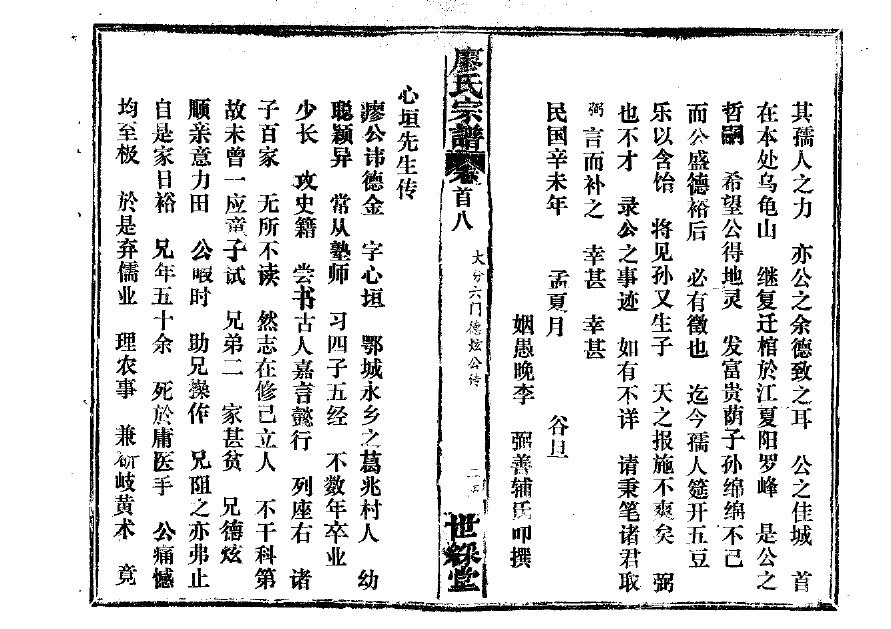 其孺人之力 亦公之余德致之耳 公之佳城 首
在本处乌龟山 继复迁棺於江夏阳罗峰 是公之
哲嗣 希望公得地灵 发富贵荫子孙绵绵不已
而公盛德裕后 必有徵也 迄今孺人筵开五豆
乐以含饴 将见孙又生子 天之报施不爽矣 弼
也不才 录公之事迹 如有不详 请秉笔诸君取
弼言而补之 幸甚 幸甚
民国辛未年 孟夏月 谷旦
姻愚晚李 弼善辅氏叩撰
廖氏宗譜
卷首八
大分六门德炫公传
世綵堂
心垣先生传
廖公讳德金 字心垣 鄂城永乡之葛兆村人 幼
聪颖异 常从塾师 习四子五经 不数年卒业
少长 攻史籍 尝书古人嘉言懿行 列座右 诸
子百家 无所不读 然志在修己立人 不干科第
故未曾一应童子试 兄弟二 家甚贫 兄德炫
顺亲意力田 公暇时 助兄操作 兄阻之亦弗止
自是家日裕 兄年五十余 死於庸医手 公痛憾
均至极 於是弃儒业 理农事 兼研岐黄术 竟